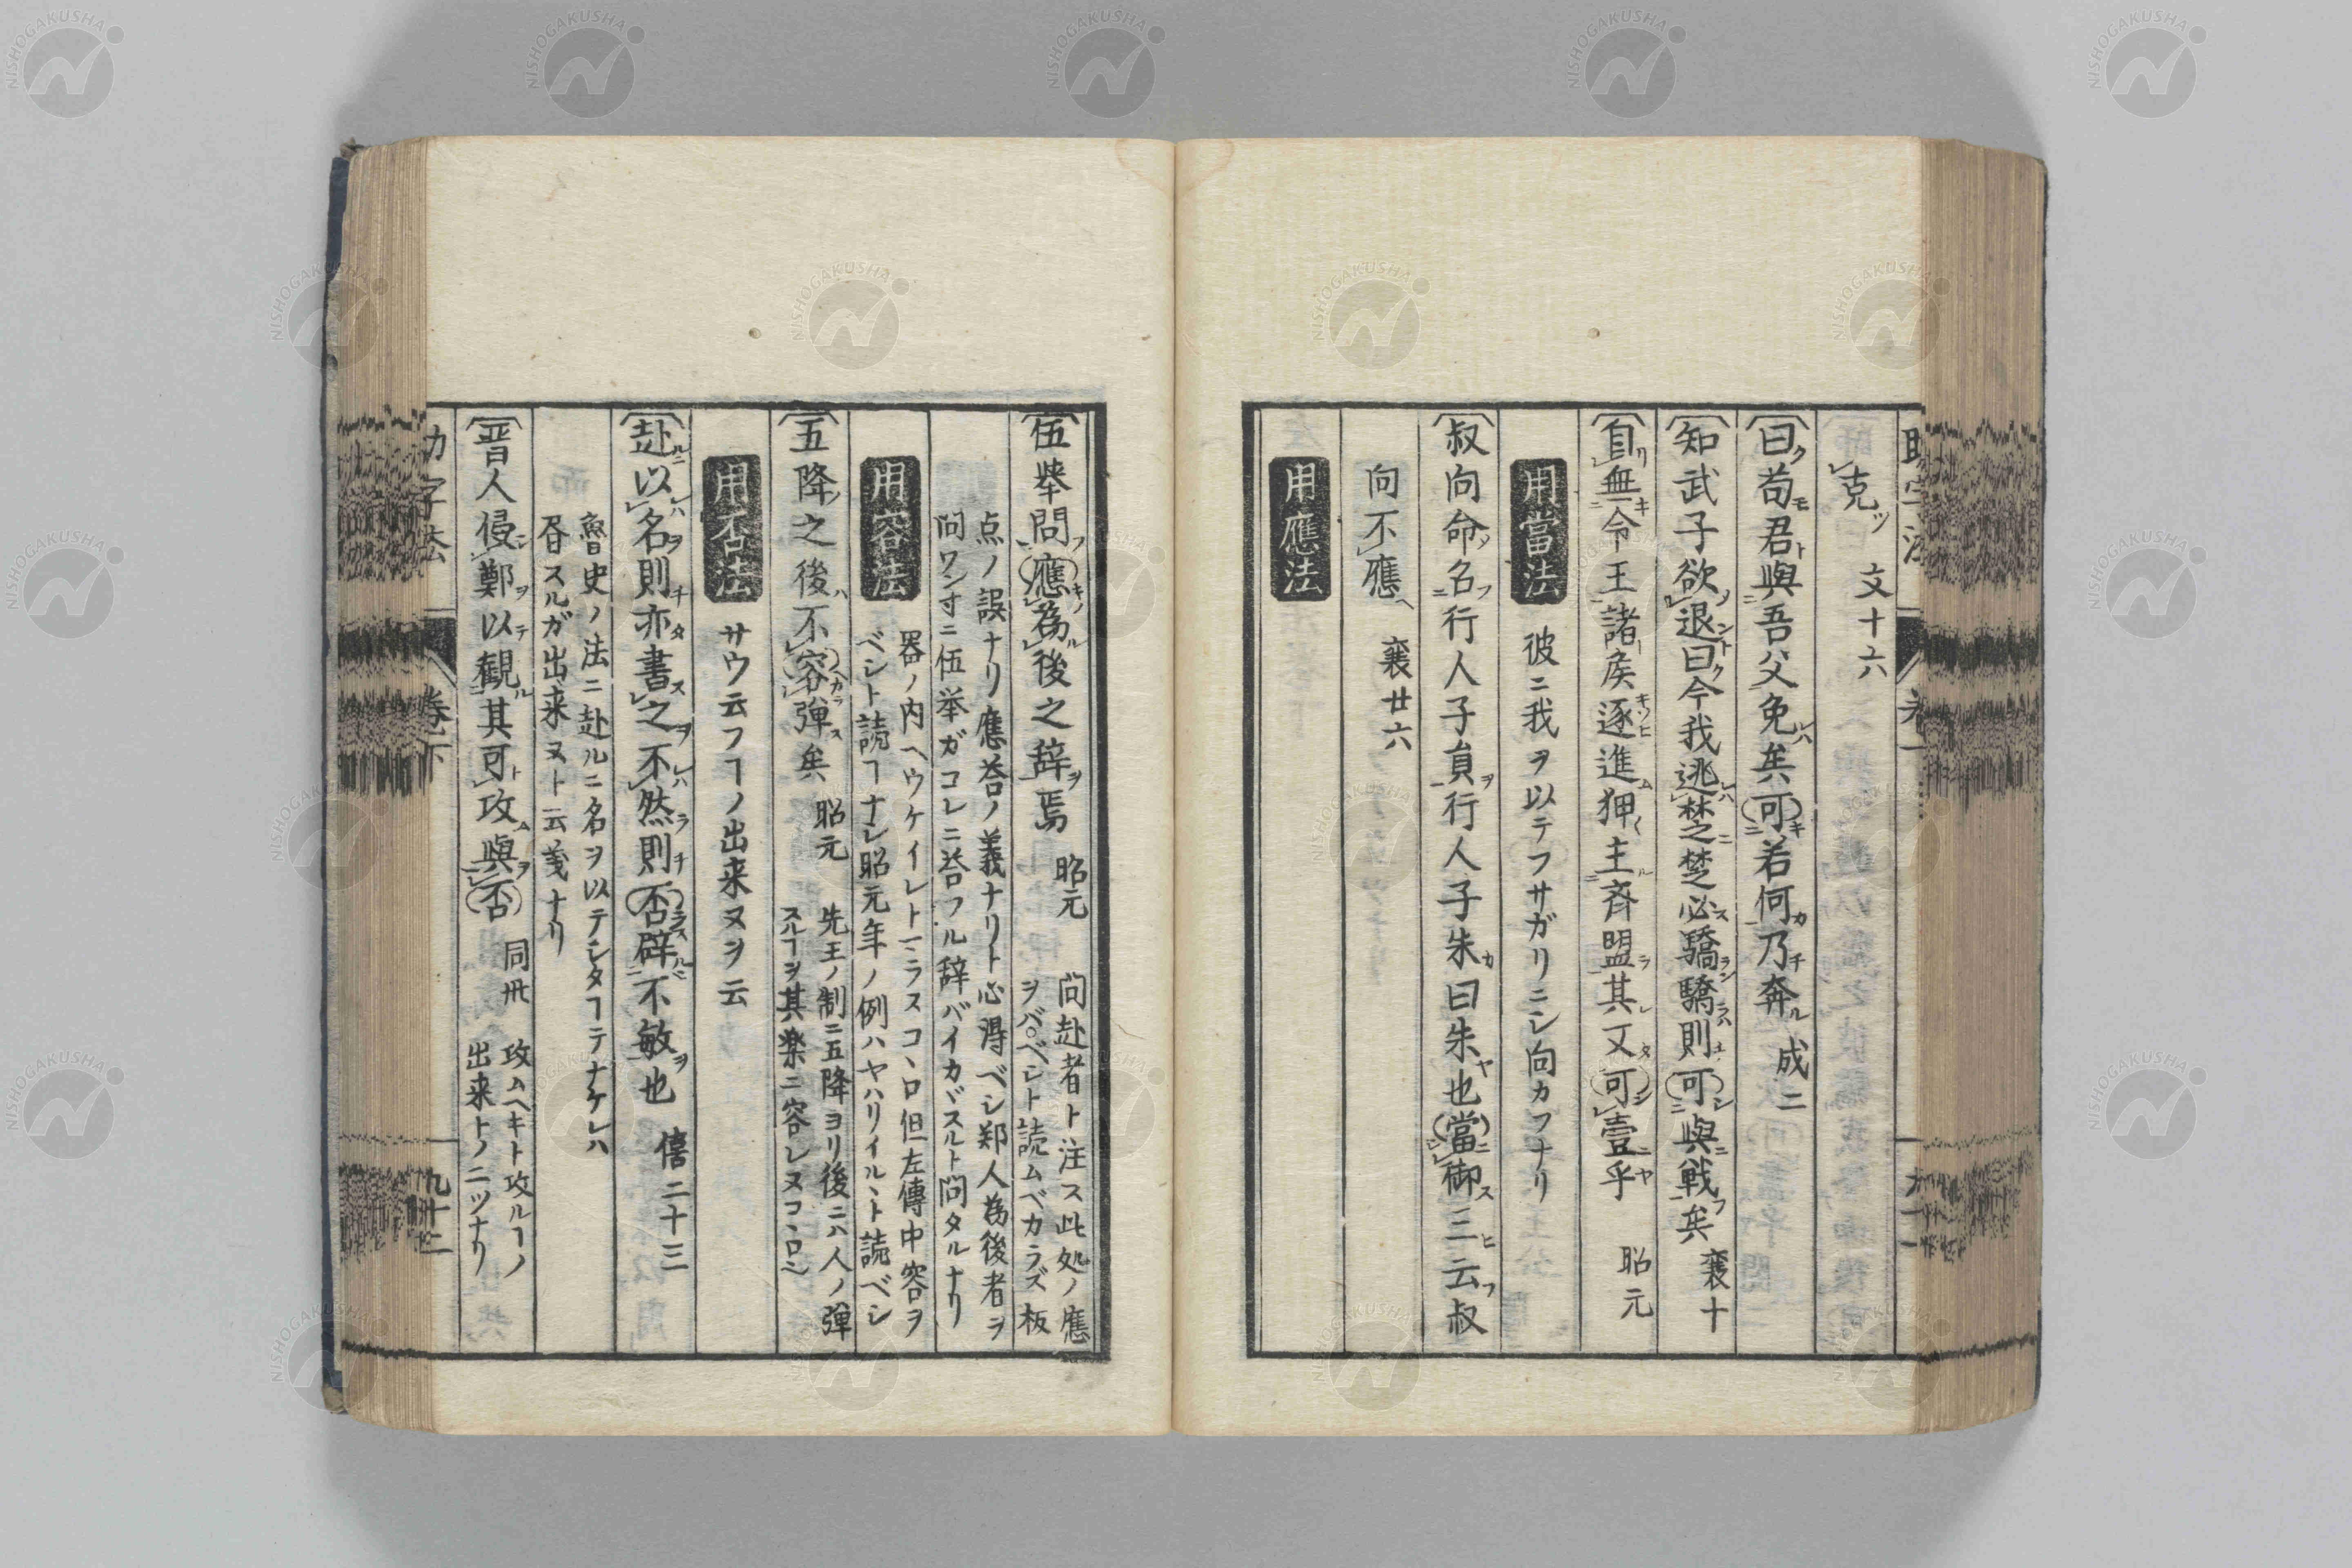 克ツ 文十六
曰ク苟モ君與吾父免レハ矣可キ若何カ乃チ奔ル 成二
知武子欲ノ退ント曰ク今我逃レハ楚ニ楚必ス驕ラン驕ラハ則可シ與ニ戦フ矣 襄十
自リ無キ令王諸侯逐キソヒ進ム狎〱主ル齊盟ラ其レ又タ可シ壹ニ乎ヤ 昭元
用當法 彼ニ我ヲ以テフサガリニシ向カフナリ
叔向命ソ名フ行人子貟ヲ行人子朱カ曰朱ヤ也當ニ御ス三ヒ云フ叔
向不應ヘ 襄廿六
用應法
伍挙問フ應キノ為ル後之辞ヲ焉 昭元 問赴者ト注ス此処ノ應
ヲバベシト読ムベカラズ板
点ノ誤ナリ應荅ノ義ナリト心得ベシ郑人為後者ヲ
問ワンオニ伍挙ガコレニ荅フル辞バイカヾスルト問タルナリ
用容法 器ノ内ヘウケイレトヽラスコヽロ但左傳中容ヲ
ベシト読ヿナシ昭元年ノ例ハヤハリイルヽト読ベシ
五降ノ之後ハ不容カラ弾ス矣 昭元 先王ノ制ニ五降ヨリ後ニハ人ノ弾
スルヿヲ其楽ニ容レヌコヽロニ
用否法 サウ云フヿノ出来ヌヲ云
赴ルニ以レハ名ヲ則チ亦タ書ス之ヲ不レハ然ラ則チ否ラス辟ルニ不敏ヲ也 僖二十三
魯史ノ法ニ赴ルニ名ヲ以テシタヿテナケレハ
昏スルガ出来ヌト云義ナリ
晋人侵シ鄭ヲ以テ觀ル其可ト攻ム與ヲ否 同卅 攻ムヘキト攻ルヿノ
出来トノ二ツナリ
字法 卷下 九十二